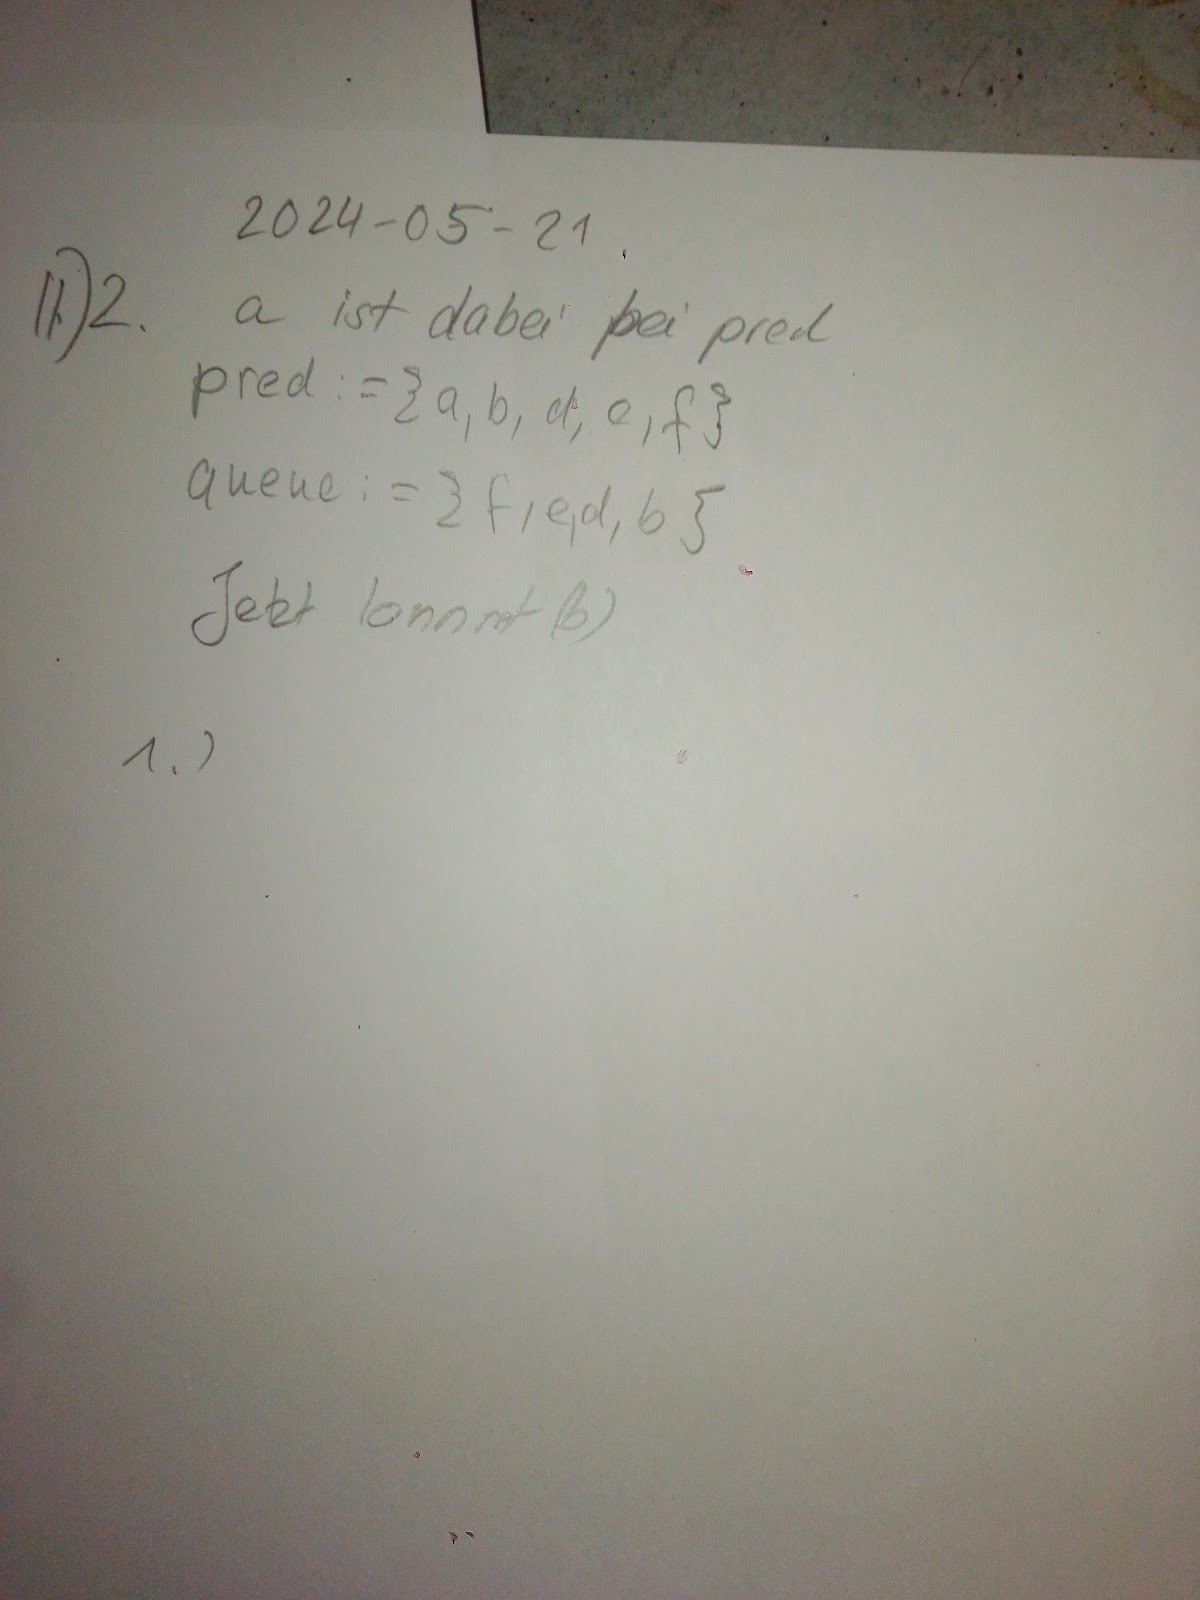 2024-05-21
II.)2. a ist dabei bei pred
pred := {a, b, d, e, f}
queue := {f, e, d, b}
Jetzt kommt (b)
1.)